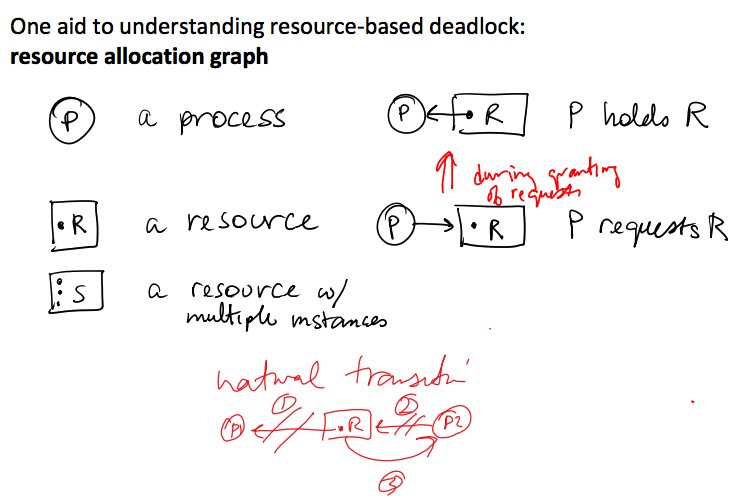 One aid to understanding resource-based deadlock:
resource allocation graph
P a process P R P holds R
during granting
of requests
R a resource P R P requests R
S a resource w/
multiple instances
natural transiti
① ②
P1 R P2
③